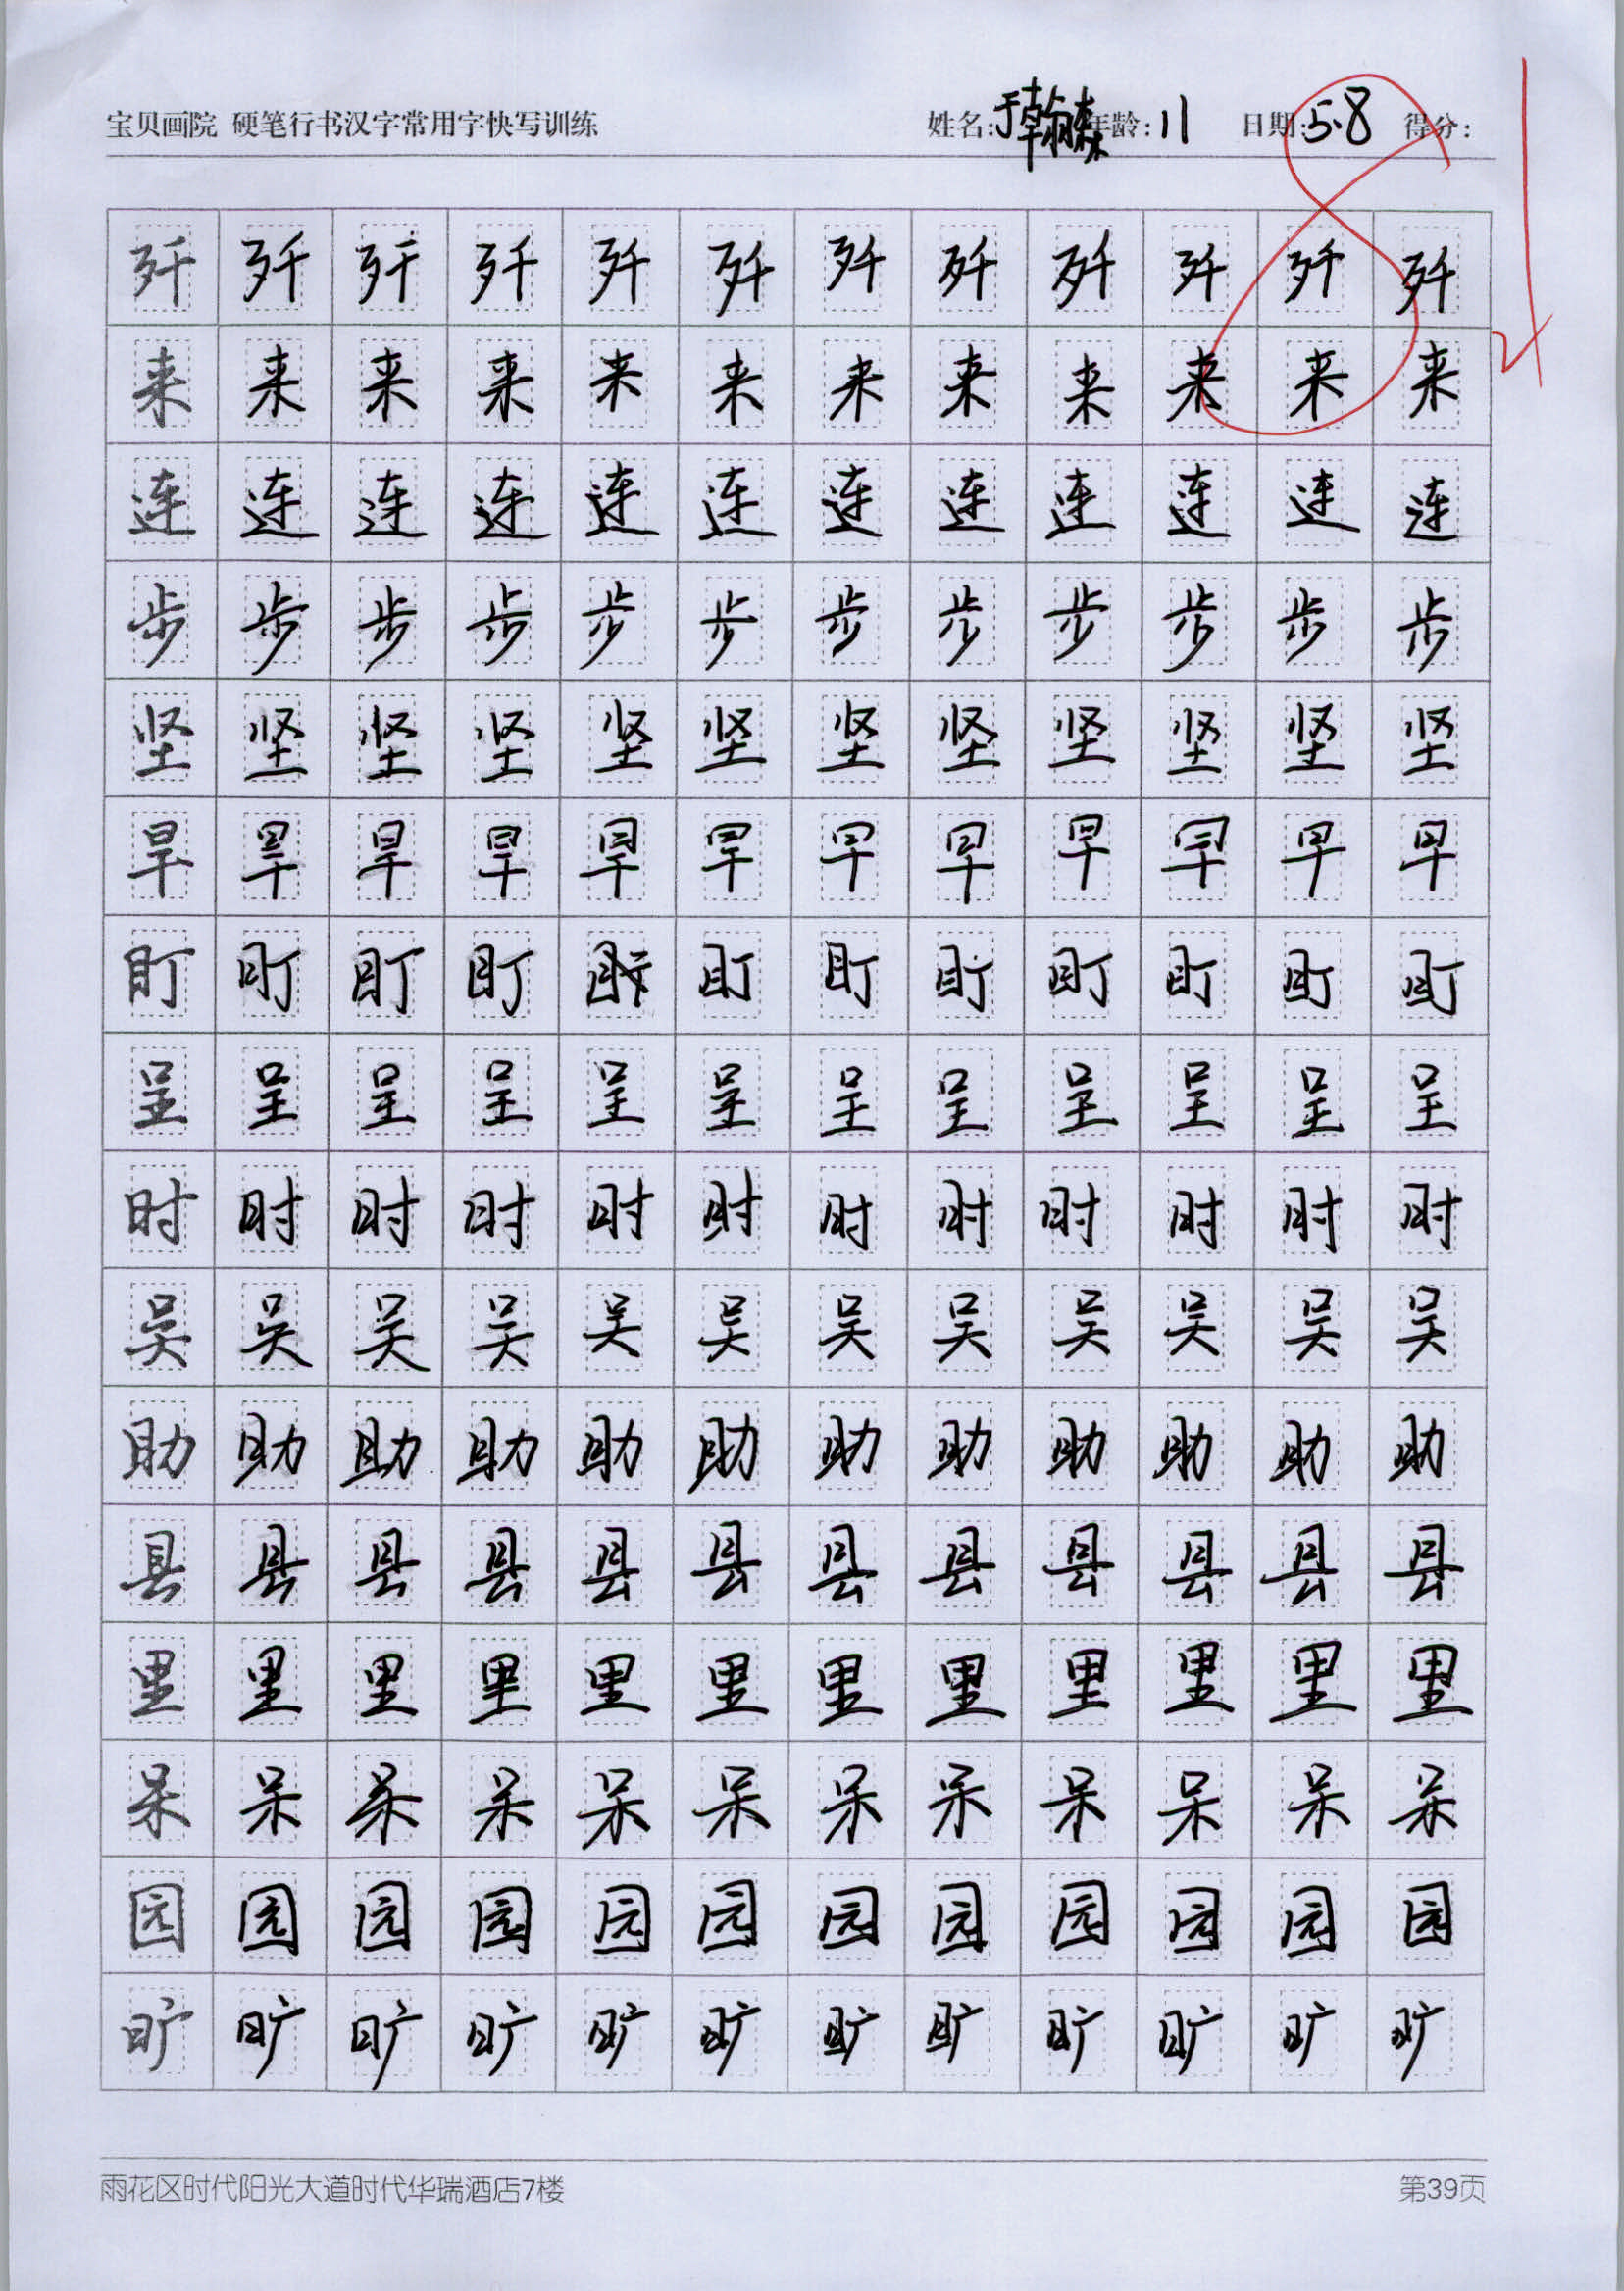 宝贝画院 硬笔行书汉字常用字快写训练 姓名:于翰森 年龄:11 日期:5.8 得分:
歼 歼 歼 歼 歼 歼 歼 歼 歼 歼 歼 歼
来 来 来 来 来 来 来 来 来 来 来 来
连 连 连 连 连 连 连 连 连 连 连 连
步 步 步 步 步 步 步 步 步 步 步 步
坚 坚 坚 坚 坚 坚 坚 坚 坚 坚 坚 坚
旱 旱 旱 旱 旱 旱 旱 旱 旱 旱 旱 旱
盯 盯 盯 盯 盯 盯 盯 盯 盯 盯 盯
呈 呈 呈 呈 呈 呈 呈 呈 呈 呈 呈 呈
时 时 时 时 时 时 时 时 时 时 时 时
吴 吴 吴 吴 吴 吴 吴 吴 吴 吴 吴 吴
助 助 助 助 助 助 助 助 助 助 助 助
县 县 县 县 县 县 县 县 县 县 县 县
里 里 里 里 里 里 里 里 里 里 里 里
呆 呆 呆 呆 呆 呆 呆 呆 呆 呆 呆 呆
园 园 园 园 园 园 园 园 园 园 园 园
旷 旷 旷 旷 旷 旷 旷 旷 旷 旷 旷 旷
雨花区时代阳光大道时代华瑞酒店7楼 第39页